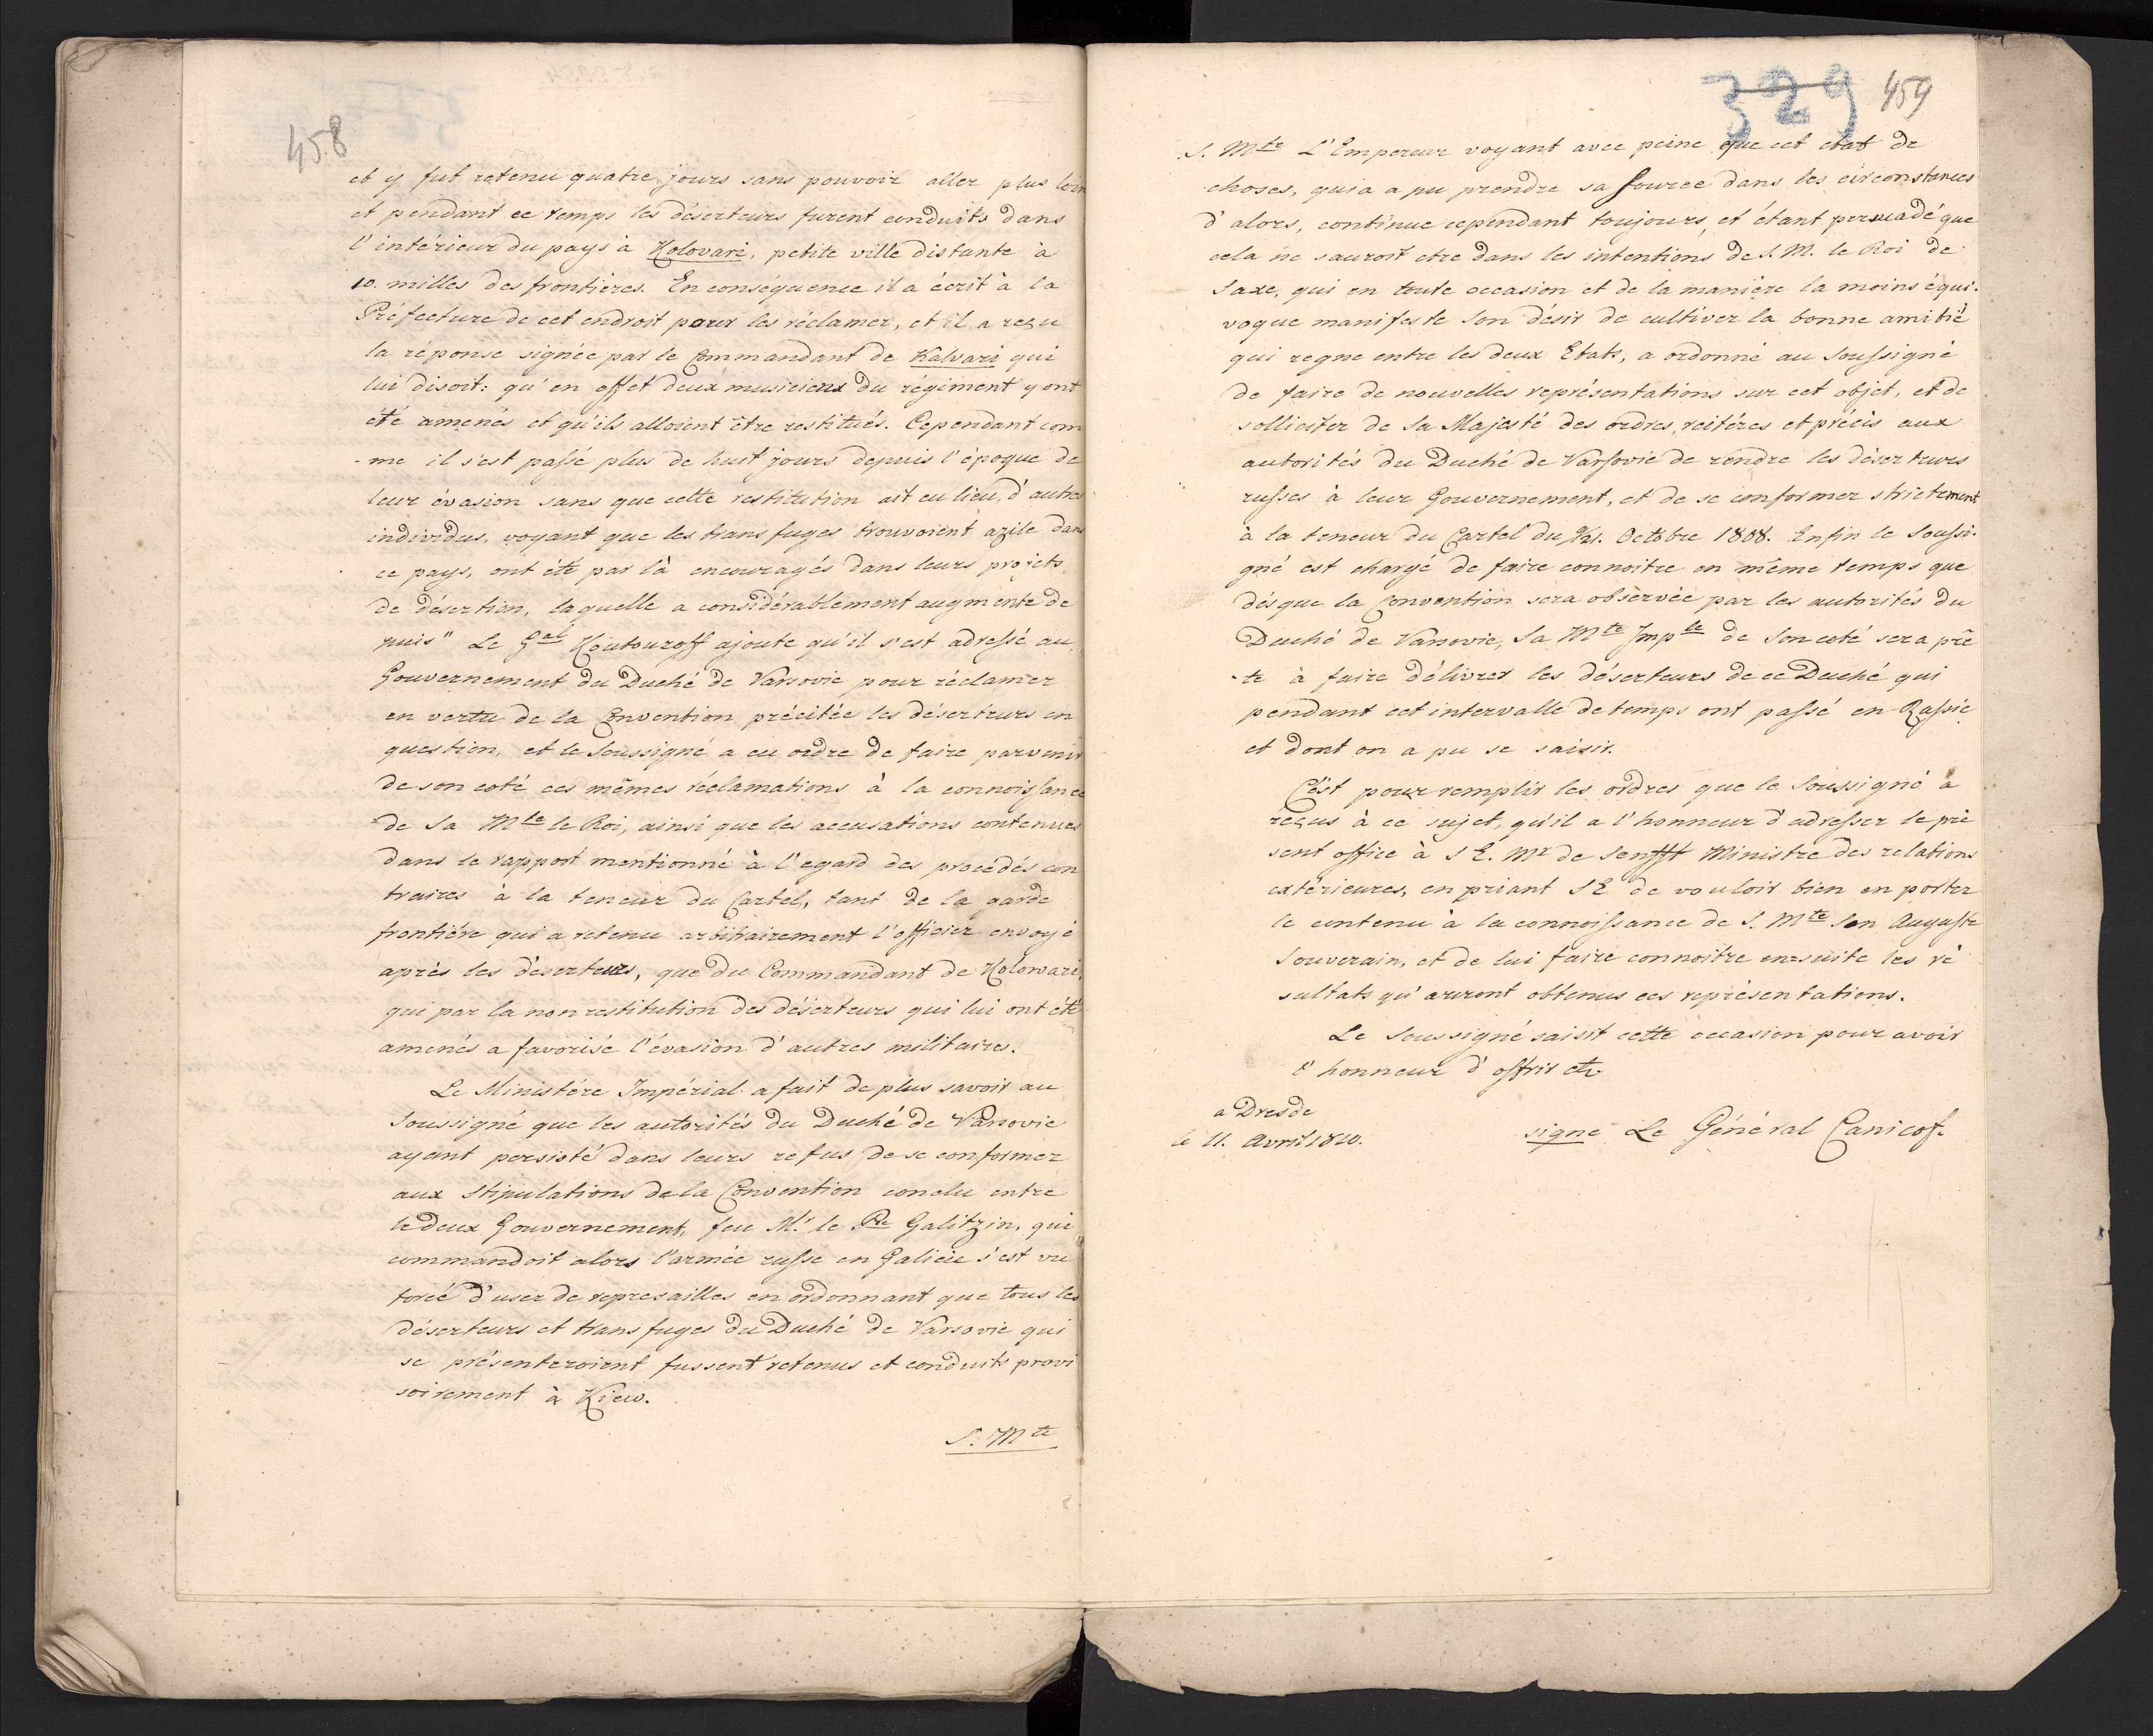 458
et y fut retenu quatre jours sans pouvoir aller plus loin
et pendant ce temps les déserteurs furent conduits dans
l'intérieur du pays à Kolovari, petite ville distante à
10. milles des frontières. En conséquence il a écrit à la
Préfecture de cet endroit pour les réclamer, et il a reçu
la réponse signée par le Commandant de Kalvari qui
lui disoit: qu'en effét deux musiciens du régiment y ont
été amenés et qu'ils alloient être restitués. Cependant com
-me il s'est passé plus de huit jours depuis l'époque de
leur évasion sans que cette restitution ait eu lieu, d'autres
individus, voyant que les transfuges trouvoient azile dans
ce pays, ont été par là encouragés dans leurs projets
de désertion, laquelle a considérablement augmenté de
puis" Le Gal Koutouzoff ajoute qu'il s'est adressé au
Gouvernement du Duché de Varsovie pour réclamer
en vertu de la Convention précitée les déserteurs en
question, et le Soussigné a eu ordre de faire parvenir
de son coté ces mêmes réclamations à la connoissance
de Sa Mte le Roi, ainsi que les accusations contenues
dans le rapport mentionné à l'egard des procédés con
traires à la teneur du Cartel, tant de la garde
frontière qui a retenu arbitrairement l'officier envoyé
après les déserteurs, que du Commandant de Kolowari,
qui par la non restitution des déserteurs qui lui ont été
amenés a favorisé l'évasion d'autres militaires.
Le Ministère Impérial a fait de plus savoir au
Soussigné que les autorités du Duché de Varsovie
ayant persisté dans leurs refus de se conformer
aux stipulations de la Convention conclu entre
le deux Gouvernement, feu Mr le Pce Galitzin, qui
commandoit alors l'armée russe en Galicie s'est vu
forcé d'user de represailles en ordonnant que tous les
déserteurs et transfuges du Duché de Varsovie qui
se présenteroient fussent retenus et conduits provi
soirement à Kiew.
S. Mte
329 459
S. Mte L'Empereur voyant avec peine que cet etat de
choses, qui a a pu prendre sa source dans les circonstances
d'alors, continue cependant toujours, et étant persuadé que
cela ne sauroit etre dans les intentions de S. M. le Roi de
Saxe, qui en toute occasion et de la manière la moins équi-
voque manifeste son désir de cultiver la bonne amitié
qui regne entre les deux Etats, a ordonné au Soussigné
de faire de nouvelles représentations sur cet objet, et de
solliciter de Sa Majesté des ordres reitérés et précis aux
autorités du Duché de Varsovie de rendre les déserteurs
russes à leur Gouvernement, et de se conformer strictement
à la teneur du Cartel du 9/21. Octobre 1808. Enfin le Soussi-
gné est chargé de faire connoitre en même temps que
désque la Convention sera observée par les autorités du
Duché de Varsovie, Sa Mte Imple de son coté sera prê
-te à faire délivrer les déserteurs de ce Duché qui
pendant cet intervalle de temps ont passé en Russie
et dont on a pu se saisir.
C'est pour remplir les ordres que le Soussigné a
reçus à ce sujet, qu'il a l'honneur d'adresser le pré
sent office à S E. Mr de Senfft Ministre des relations
extérieures, en priant S E de vouloir bien en porter
le contenu à la connoissance de S. Mte Son Auguste
Souverain, et de lui faire connoitre en=suite les ré
sultats qu'auront obtenus ces représentations.
Le Soussigné saisit cette occasion pour avoir
l'honneur d'offrir etc
a Dresde
le 11. Avril 1810.
signé Le Général Canicof.